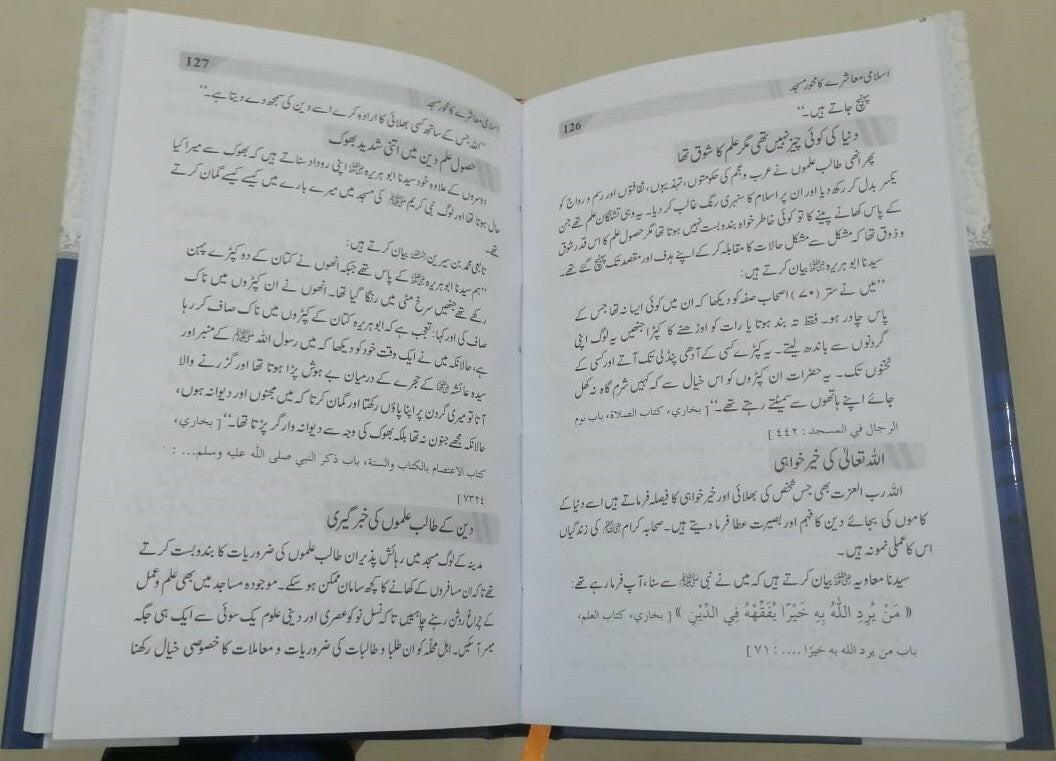 اسلامی معاشرے کا محور مسجد
126
پہنچ جاتے ہیں۔‘‘
دنیا کی کوئی چیز نہیں تھی مگر علم کا شوق تھا
پھر انھی طالب علموں نے عرب و عجم کی حکومتوں، تہذیبوں، ثقافتوں اور رسم و رواج کو
یکسر بدل کر رکھ دیا اور ان پر اسلام کا سنہری رنگ غالب کر دیا۔ یہ وہی تشنگان علم تھے جن
کے پاس کھانے پینے کا تو کوئی خاطر خواہ بندوبست نہیں ہوتا تھا مگر حصول علم کا اس قدر شوق
و ذوق تھا کہ مشکل سے مشکل حالات کا مقابلہ کر کے اپنے ہدف اور مقصد تک پہنچ گئے تھے۔
سیدنا ابو ہریرہ رضی اللہ عنہ بیان کرتے ہیں:
’’میں نے ستر (۷۰) اصحاب صفہ کو دیکھا کہ ان میں کوئی ایسا نہ تھا جس کے
پاس چادر ہو۔ فقط تہ بند ہوتا یا رات کو اوڑھنے کا کپڑا جنھیں یہ لوگ اپنی
گردنوں سے باندھ لیتے۔ یہ کپڑے کسی کے آدھی پنڈلی تک آتے اور کسی کے
ٹخنوں تک۔ یہ حضرات ان کپڑوں کو اس خیال سے کہ کہیں شرم گاہ نہ کھل
جائے اپنے ہاتھوں سے سمیٹتے رہتے تھے۔‘‘ [ بخاري، کتاب الصلاة، باب نوم
الرجال في المسجد : ٤٤٢ ]
اللہ تعالیٰ کی خیر خواہی
اللہ رب العزت بھی جس شخص کی بھلائی اور خیر خواہی کا فیصلہ فرماتے ہیں اسے دنیا کے
کاموں کی بجائے دین کا فہم اور بصیرت عطا فرما دیتے ہیں۔ صحابہ کرام رضی اللہ عنہم کی زندگیاں
اس کا عملی نمونہ ہیں۔
سیدنا معاویہ رضی اللہ عنہ بیان کرتے ہیں کہ میں نے نبی ﷺ سے سنا، آپ فرما رہے تھے:
« مَنْ يُرِدِ اللّٰهُ بِهِ خَيْرًا يُفَقِّهْهُ فِي الدِّيْنِ » [ بخاري، کتاب العلم،
باب من يرد الله به خيرًا .... : ٧١ ]
127
اسلامی معاشرے کا محور مسجد
’’اللہ جس کے ساتھ کسی بھلائی کا ارادہ کرے اسے دین کی سمجھ دے دیتا ہے۔‘‘
حصول علم دین میں اتنی شدید بھوک
دوسروں کے علاوہ خود سیدنا ابو ہریرہ رضی اللہ عنہ اپنی روداد سناتے ہیں کہ بھوک سے میرا کیا
حال ہوتا تھا اور لوگ نبی کریم ﷺ کی مسجد میں میرے بارے میں کیسے کیسے گمان کرتے
تھے۔
تابعی محمد بن سیرین رحمہ اللہ بیان کرتے ہیں:
’’ہم سیدنا ابو ہریرہ رضی اللہ عنہ کے پاس تھے جبکہ انھوں نے کتان کے دو کپڑے پہن
رکھے تھے جنھیں سرخ مٹی میں رنگا گیا تھا۔ انھوں نے ان کپڑوں میں ناک
صاف کی اور کہا: تعجب ہے کہ ابو ہریرہ کتان کے کپڑوں میں ناک صاف کر رہا
ہے، حالانکہ میں نے ایک وقت خود کو دیکھا کہ میں رسول اللہ ﷺ کے منبر اور
سیدہ عائشہ رضی اللہ عنہا کے حجرے کے درمیان بے ہوش پڑا ہوتا تھا اور گزرنے والا
آتا تو میری گردن پر اپنا پاؤں رکھتا اور گمان کرتا کہ میں مجنوں اور دیوانہ ہوں،
حالانکہ مجھے جنون نہ تھا بلکہ بھوک کی وجہ سے دیوانہ وار گر پڑتا تھا۔‘‘ [ بخاري،
کتاب الاعتصام بالکتاب والسنة، باب ذکر النبي صلى الله عليه وسلم.... :
٧٣٢٤ ]
دین کے طالب علموں کی خبر گیری
مدینہ کے لوگ مسجد میں رہائش پذیر ان طالب علموں کی ضروریات کا بندوبست کرتے
تھے تاکہ ان مسافروں کے کھانے کا کچھ سامان ممکن ہو سکے۔ موجودہ مساجد میں بھی علم و عمل
کے چراغ روشن رہنے چاہییں تاکہ نسل نو کو عصری اور دینی علوم یک سوئی سے ایک ہی جگہ
میسر آئیں۔ اہل محلہ کو ان طلبا و طالبات کی ضروریات و معاملات کا خصوصی خیال رکھنا